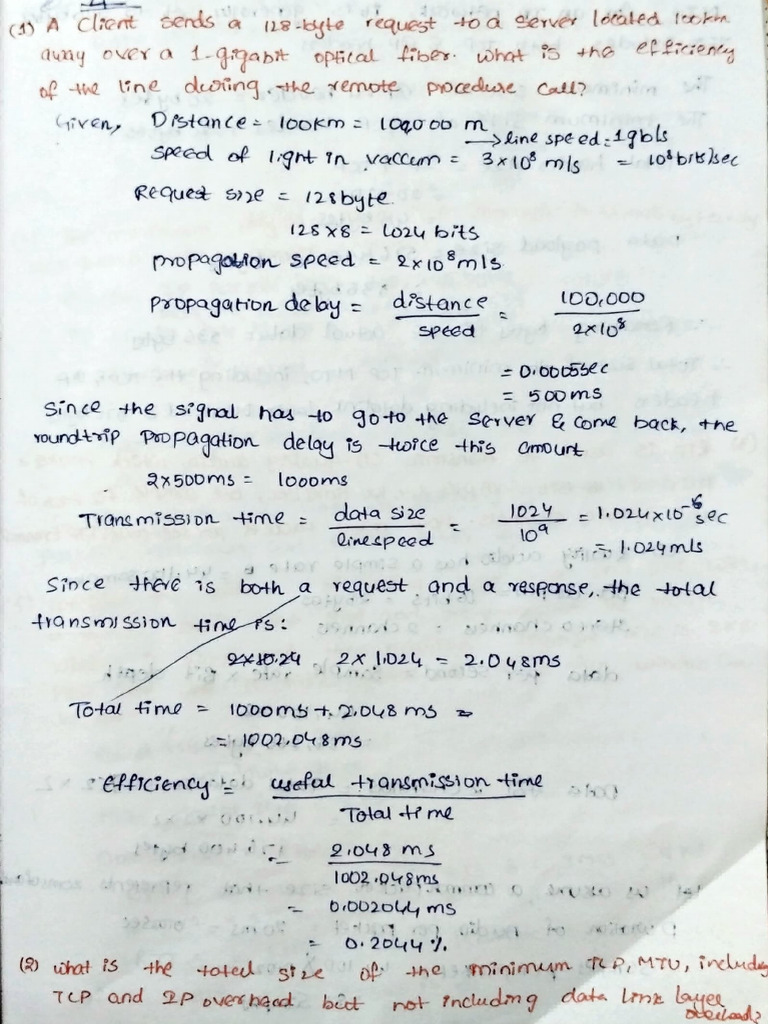 (1) A Client sends a 128-byte request to a server located 100km
away over a 1-gigabit optical fiber. what is the efficiency
of the line during the remote procedure call?
Given, Distance = 100km = 100,000 m
→ line speed = 1gb/s
speed of light in vaccum = 3×10⁸ m/s = 10⁸ bits/sec
Request size = 128byte
128×8 = 1024 bits
propagation speed = 2×10⁸ m/s
propagation delay = distance/speed = 100,000/2×10⁸
= 0.0005sec
= 500 ms
Since the signal has to go to the server & come back, the
roundtrip propagation delay is twice this amount
2×500ms = 1000ms
Transmission time = data size/linespeed = 1024/10⁹ = 1.024×10⁻⁶ sec
= 1.024 m/s
Since there is both a request and a response, the total
transmission time is:
2×1.024 = 2.048ms
Total time = 1000ms + 2.048 ms =
= 1002.048ms
efficiency = useful transmission time/Total time
= 2.048 ms/1002.048ms
= 0.002044 ms
= 0.2044 %
(2) what is the total size of the minimum TCP, MTU, including
TCP and IP overhead but not including data link layer
overhead?